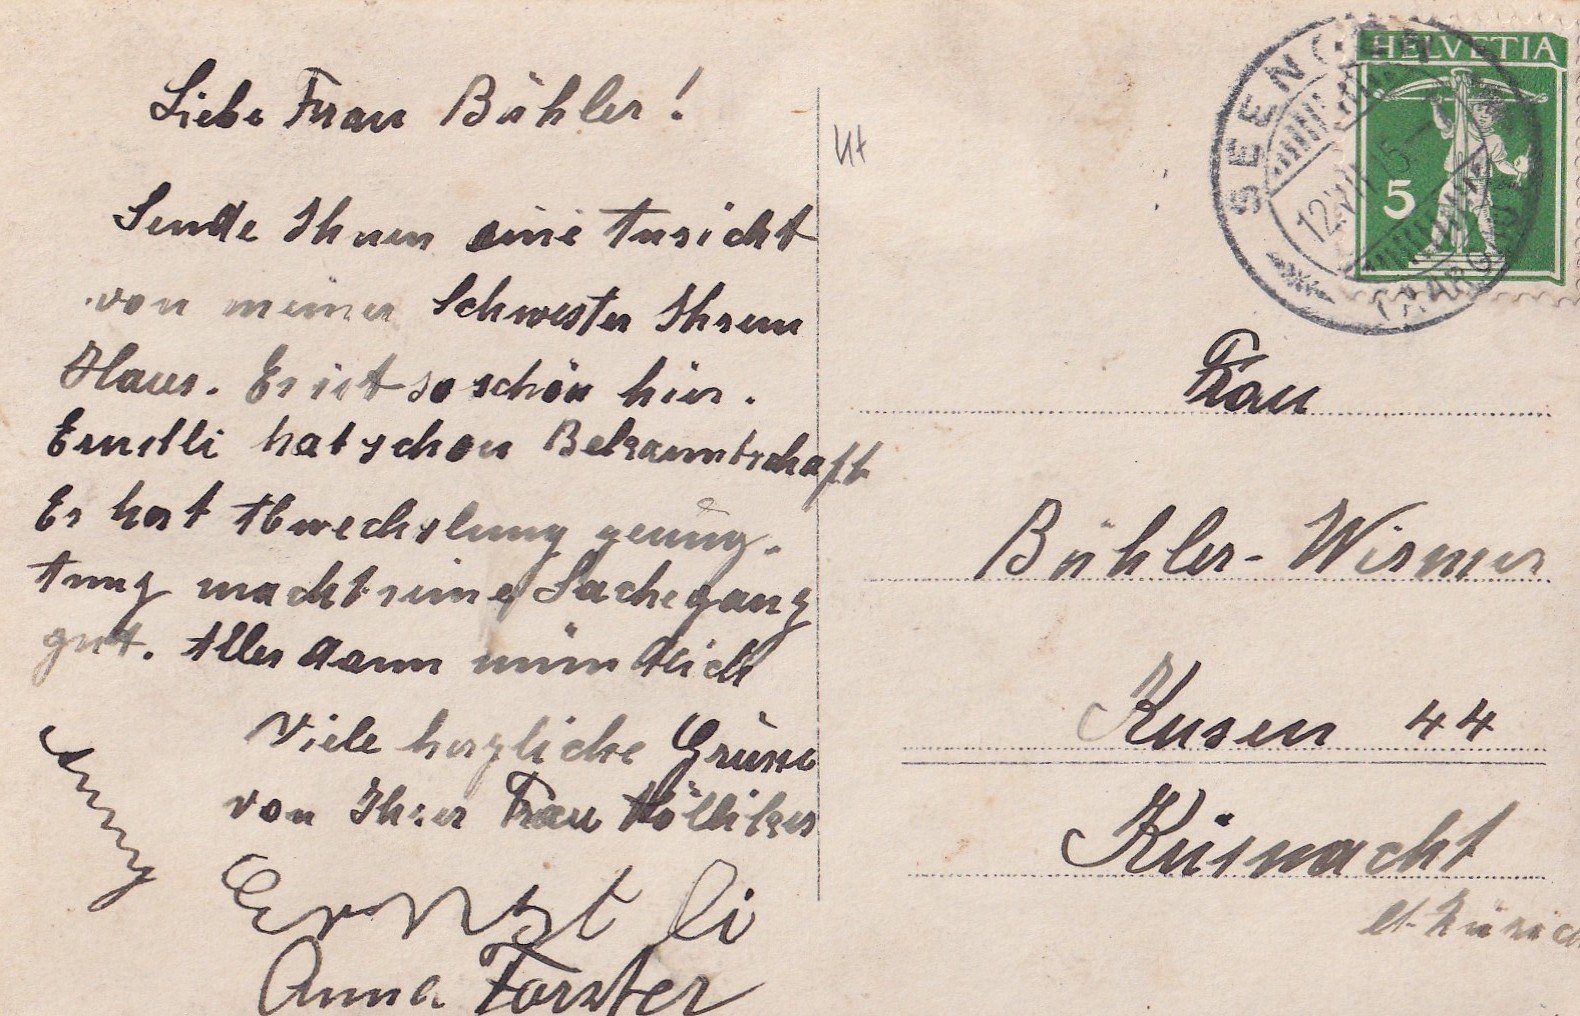 Liebe Frau Bühler!
Sende Ihnen eine Ansicht
von meiner Schwester Ihrem
Haus. Es ist so schön hier.
Ernstli hat schon Bekanntschaft
Es hat Abwechslung genug.
Anny macht seine Sache ganz
gut. Alles dann mündlich
Viele herzliche Grüsse
von Ihrer Frau Hölliker
Anny
Ernst li
Anna Forster
HELVETIA
5
SEENGEN
12.VII.15
(AARGAU)
Frau
Bühler-Wismer
Kusen 44
Küsnacht
Kt. Zürich